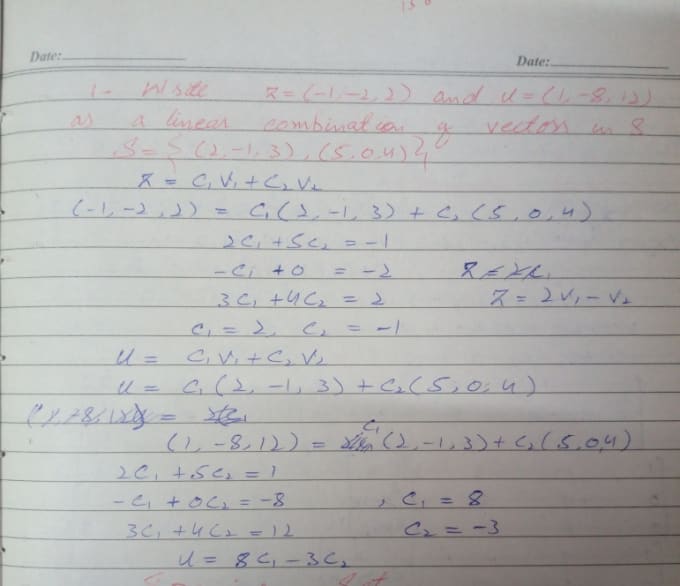 Date: Date:
1- Write z = (-1, -2, 2) and u = (1, -8, 12)
as a linear combination of vectors in S
S = { (2, -1, 3), (5, 0, 4) }
z = C₁V₁ + C₂V₂
(-1, -2, 2) = C₁(2, -1, 3) + C₂(5, 0, 4)
2C₁ + 5C₂ = -1
-C₁ + 0 = -2
3C₁ + 4C₂ = 2 z = 2V₁ - V₂
C₁ = 2, C₂ = -1
u = C₁V₁ + C₂V₂
u = C₁(2, -1, 3) + C₂(5, 0, 4)
(1, -8, 12) = C₁(2, -1, 3) + C₂(5, 0, 4)
2C₁ + 5C₂ = 1
-C₁ + 0C₂ = -8 , C₁ = 8
3C₁ + 4C₂ = 12 C₂ = -3
u = 8C₁ - 3C₂